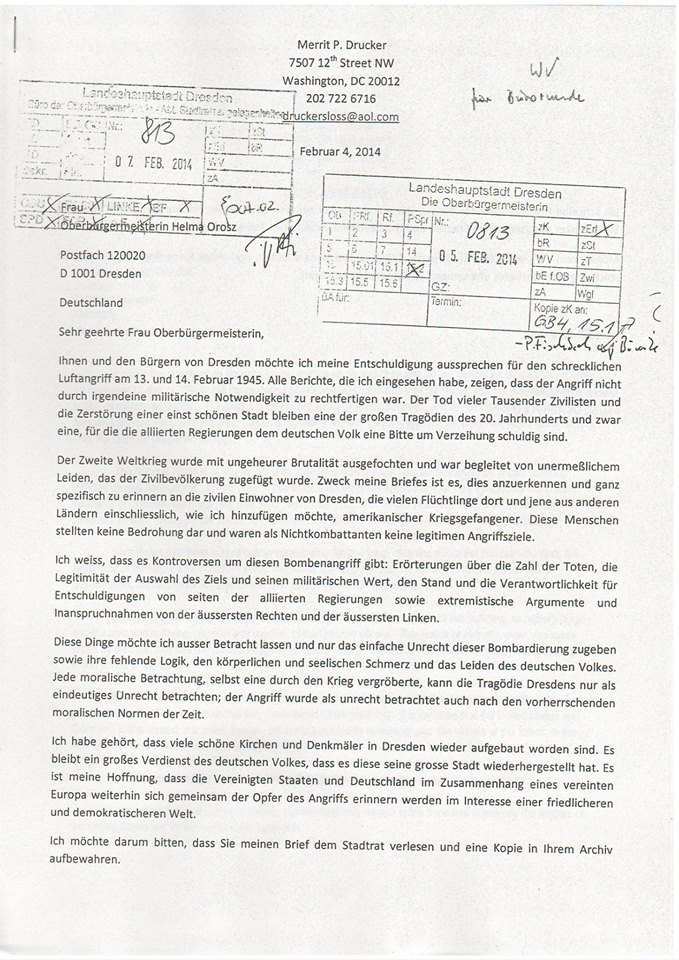 Merrit P. Drucker
7507 12th Street NW
Washington, DC 20012
202 722 6716
druckersloss@aol.com
WV
Landeshauptstadt Dresden
Büro der Oberbürgermeisterin
Nr.:
813
07. FEB. 2014
zSt
bR
WV
zA
CDU LINKE
SPD
07.02.
Februar 4, 2014
Landeshauptstadt Dresden
Die Oberbürgermeisterin
OB PRf. Rf. PSpr Nr.: 0813 zK zErl
1 2 3 4 bR zSt
5 6 7 14 05. FEB. 2014 WV zT
15.01 15.1 bE f.OB Zwi
15.3 15.5 15.6 GZ: zA Wgl
BA für: Termin: Kopie zK an:
GB4, 15.1
Frau
Oberbürgermeisterin Helma Orosz
Postfach 120020
D 1001 Dresden
Deutschland
Sehr geehrte Frau Oberbürgermeisterin,
Ihnen und den Bürgern von Dresden möchte ich meine Entschuldigung aussprechen für den schrecklichen
Luftangriff am 13. und 14. Februar 1945. Alle Berichte, die ich eingesehen habe, zeigen, dass der Angriff nicht
durch irgendeine militärische Notwendigkeit zu rechtfertigen war. Der Tod vieler Tausender Zivilisten und
die Zerstörung einer einst schönen Stadt bleiben eine der großen Tragödien des 20. Jahrhunderts und zwar
eine, für die die alliierten Regierungen dem deutschen Volk eine Bitte um Verzeihung schuldig sind.
Der Zweite Weltkrieg wurde mit ungeheurer Brutalität ausgefochten und war begleitet von unermeßlichem
Leiden, das der Zivilbevölkerung zugefügt wurde. Zweck meine Briefes ist es, dies anzuerkennen und ganz
spezifisch zu erinnern an die zivilen Einwohner von Dresden, die vielen Flüchtlinge dort und jene aus anderen
Ländern einschliesslich, wie ich hinzufügen möchte, amerikanischer Kriegsgefangener. Diese Menschen
stellten keine Bedrohung dar und waren als Nichtkombattanten keine legitimen Angriffsziele.
Ich weiss, dass es Kontroversen um diesen Bombenangriff gibt: Erörterungen über die Zahl der Toten, die
Legitimität der Auswahl des Ziels und seinen militärischen Wert, den Stand und die Verantwortlichkeit für
Entschuldigungen von seiten der alliierten Regierungen sowie extremistische Argumente und
Inanspruchnahmen von der äussersten Rechten und der äussersten Linken.
Diese Dinge möchte ich ausser Betracht lassen und nur das einfache Unrecht dieser Bombardierung zugeben
sowie ihre fehlende Logik, den körperlichen und seelischen Schmerz und das Leiden des deutschen Volkes.
Jede moralische Betrachtung, selbst eine durch den Krieg vergröberte, kann die Tragödie Dresdens nur als
eindeutiges Unrecht betrachten; der Angriff wurde als unrecht betrachtet auch nach den vorherrschenden
moralischen Normen der Zeit.
Ich habe gehört, dass viele schöne Kirchen und Denkmäler in Dresden wieder aufgebaut worden sind. Es
bleibt ein großes Verdienst des deutschen Volkes, dass es diese seine grosse Stadt wiederhergestellt hat. Es
ist meine Hoffnung, dass die Vereinigten Staaten und Deutschland im Zusammenhang eines vereinten
Europa weiterhin sich gemeinsam der Opfer des Angriffs erinnern werden im Interesse einer friedlicheren
und demokratischeren Welt.
Ich möchte darum bitten, dass Sie meinen Brief dem Stadtrat verlesen und eine Kopie in Ihrem Archiv
aufbewahren.